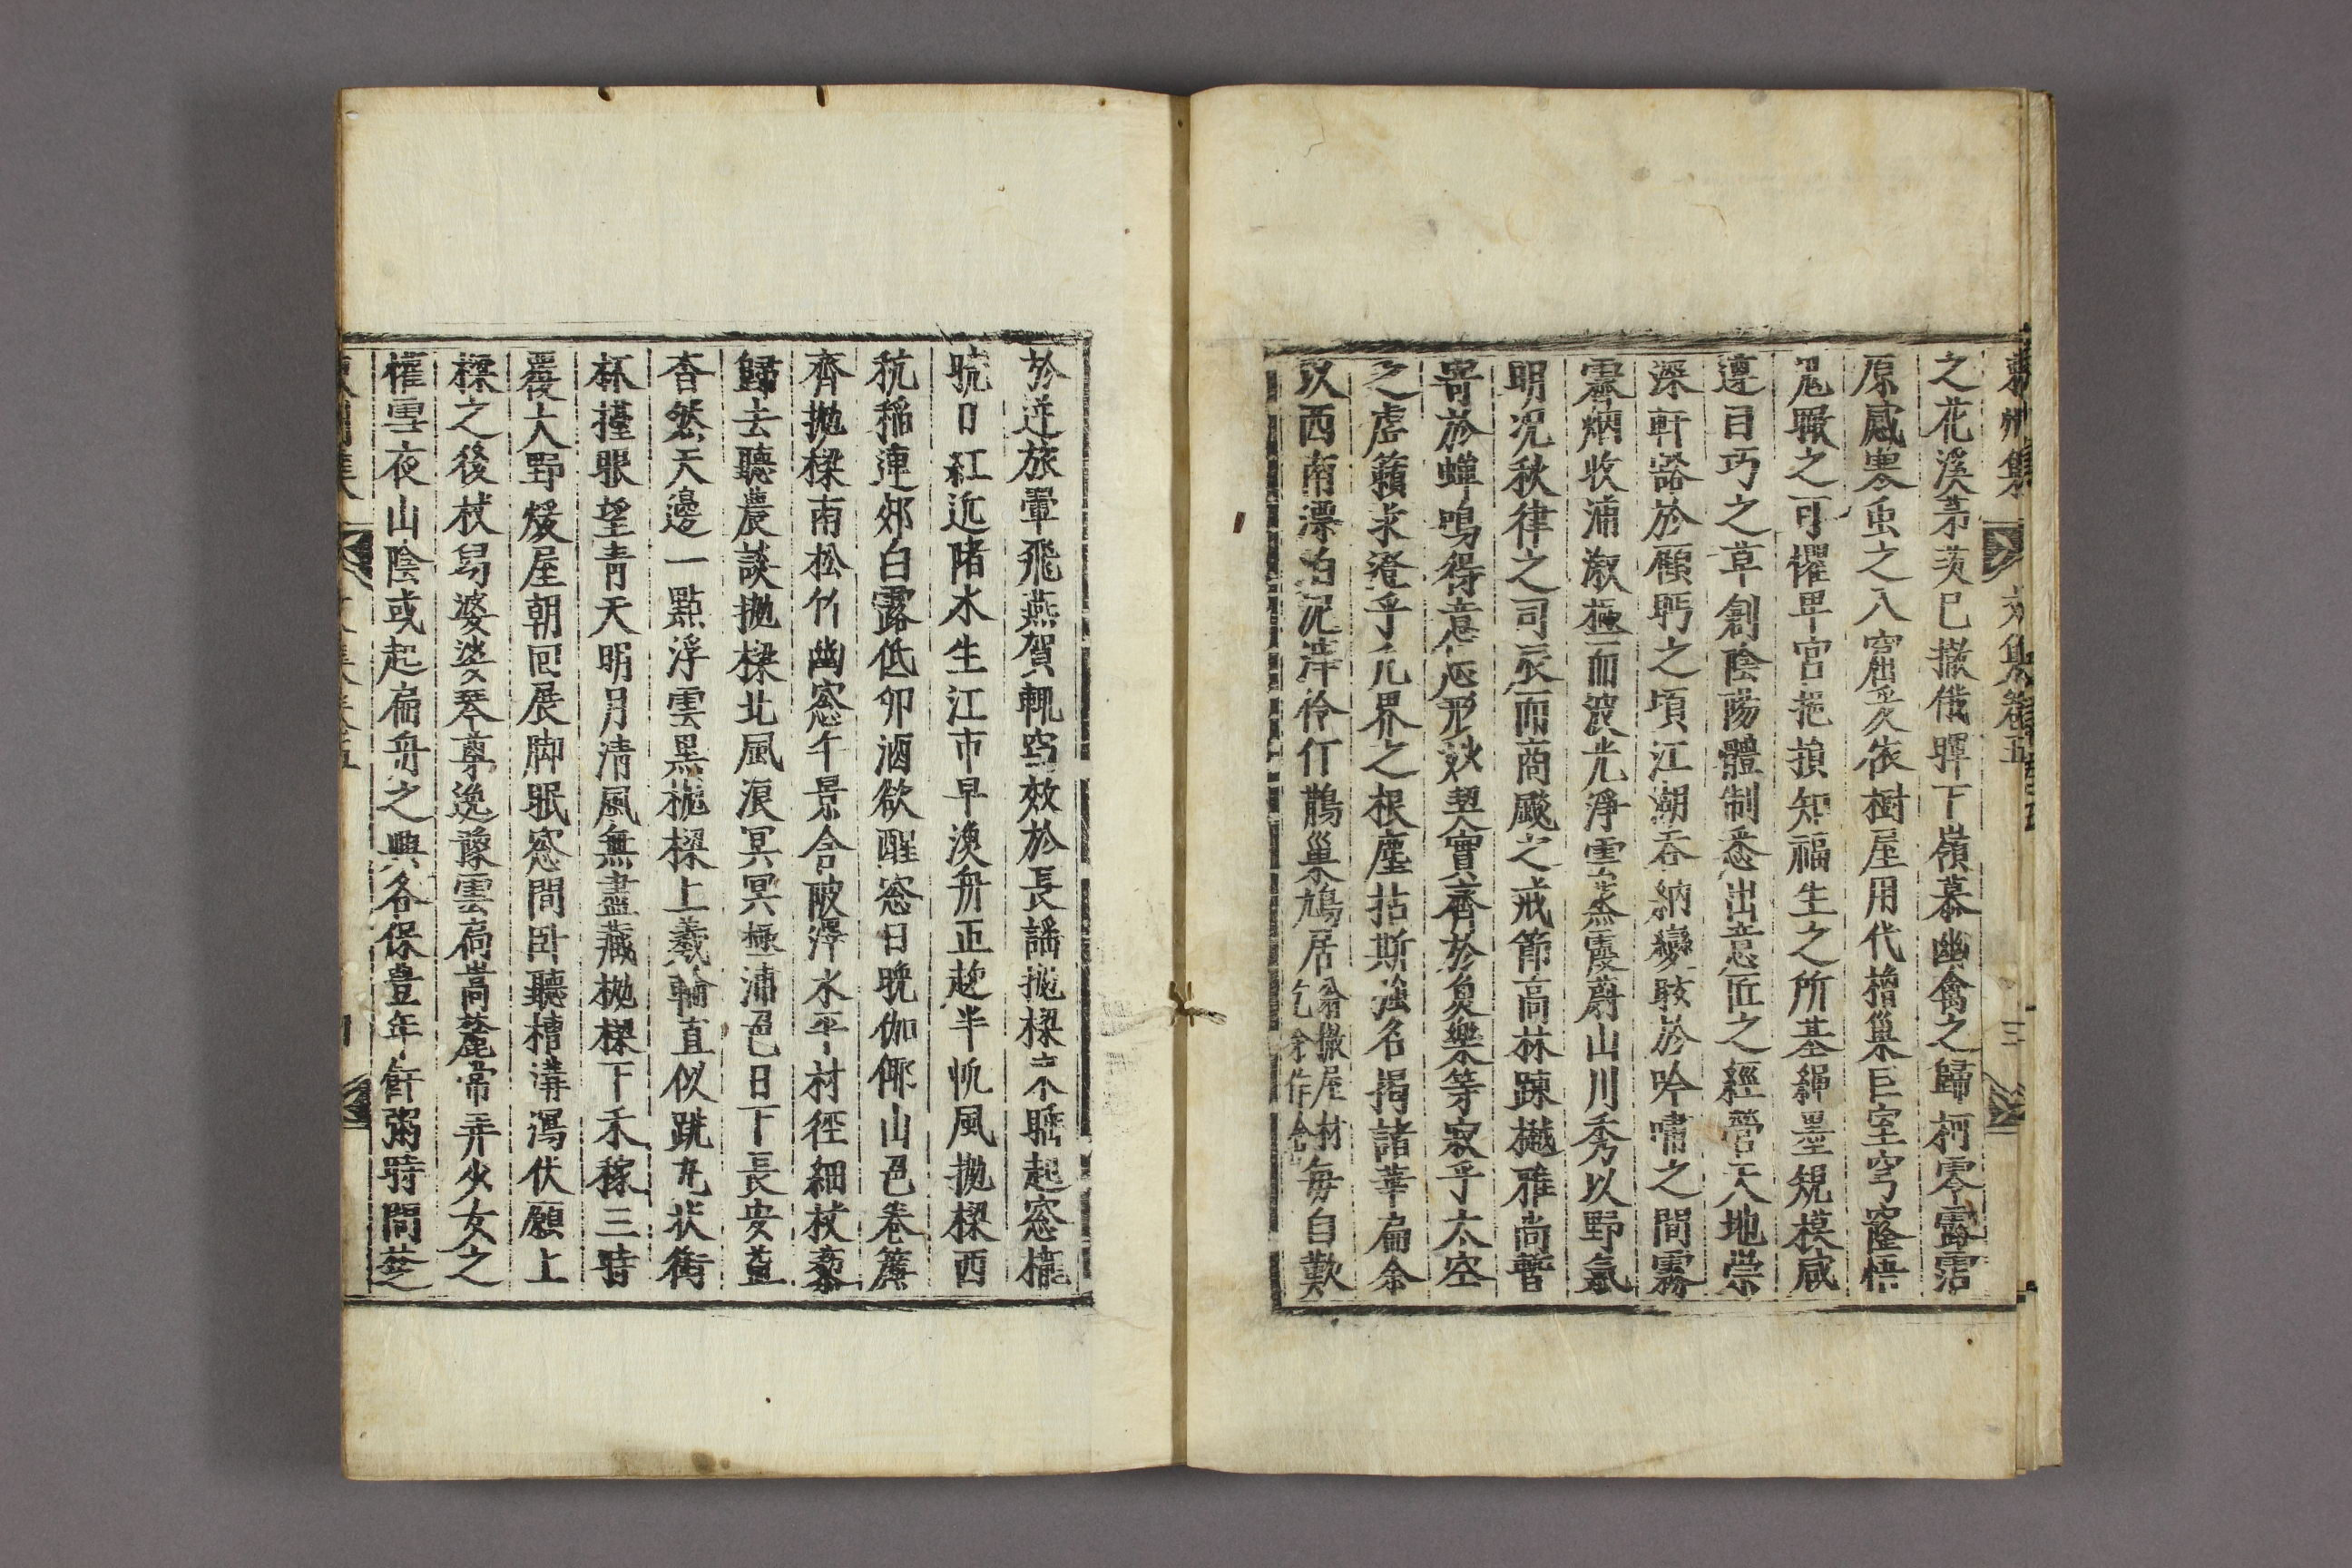 東州集 文集卷五 三
之花溪茅茨已撤俄暉下嶺慕幽禽之歸柯零露霑
原感寒虫之入窟爰依樹屋用代櫓巢巨室穹窿悟
鬼瞰之可懼卑宮挹損知福生之所基繩墨規模咸
遵目巧之草創陰陽體制悉出意匠之經營天地崇
深軒豁於顧眄之頃江潮吞納變駭於吟嘯之間霧
霽烟收浦漵極而波光淨雲蒸霞蔚山川秀以野氣
明况秋律之司辰而商飇之戒節高林踈樾雅尚暫
寄於蟬鳴得意忘形玅契實齊於魚樂等寂乎太空
之虛籟求澄乎九界之根塵拈斯強名揭諸華扁余
以西南漂泊泥滓伶仃鵲巢鳩居翁撤屋材乞余作舍每自歎
於逆旅翬飛燕賀輒窃效於長謠抛樑東睡起窓櫳
晄日紅近睹水生江市早漁舟正趂半帆風抛樑西
秔稲連郊白露低卯酒欲醒窓日晩伽倻山色卷簾
齊抛樑南松竹幽窓午景含陂澤水平村徑細杖藜
歸去聽農談抛樑北風浪冥冥極浦色日下長安益
杳然天邊一點浮雲黑抛樑上羲輪直似跳丸状銜
杯擡眼望青天明月清風無盡藏抛樑下禾稼三時
覆大野煖屋朝回展脚眠窓間卧聽槽溝瀉伏願上
樑之後杖舄婆娑琴尊逸豫雲扃嵩麓常弄少女之
權雪夜山陰或起扁舟之興各保豊年飦粥時問楚